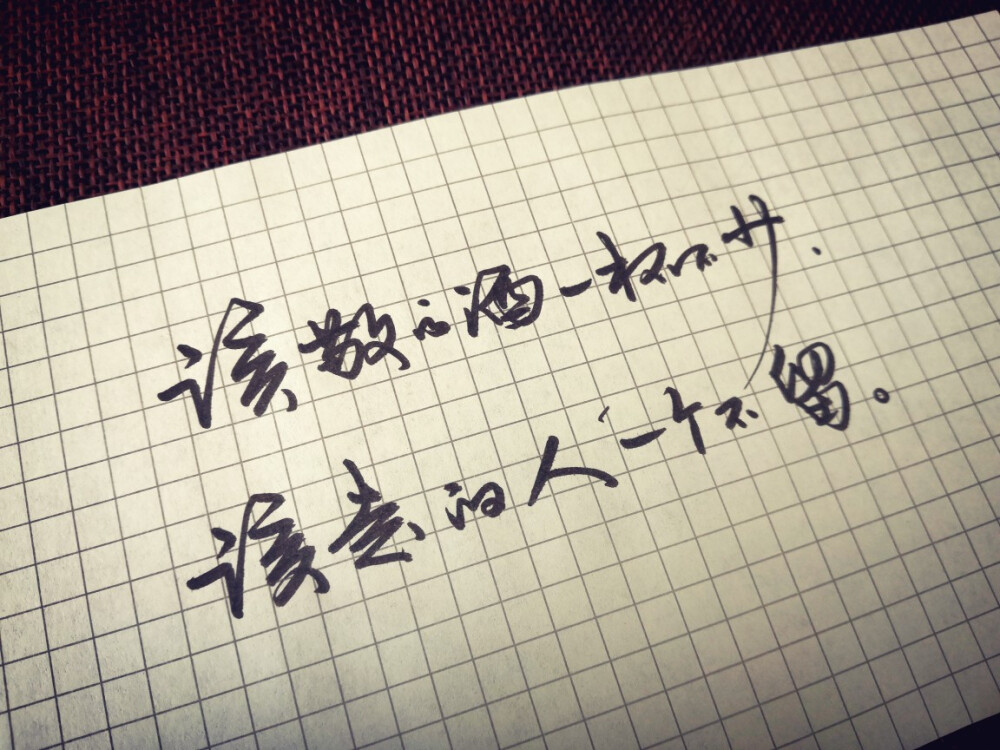 该散的酒一杯不少.
该走的人一个不留。